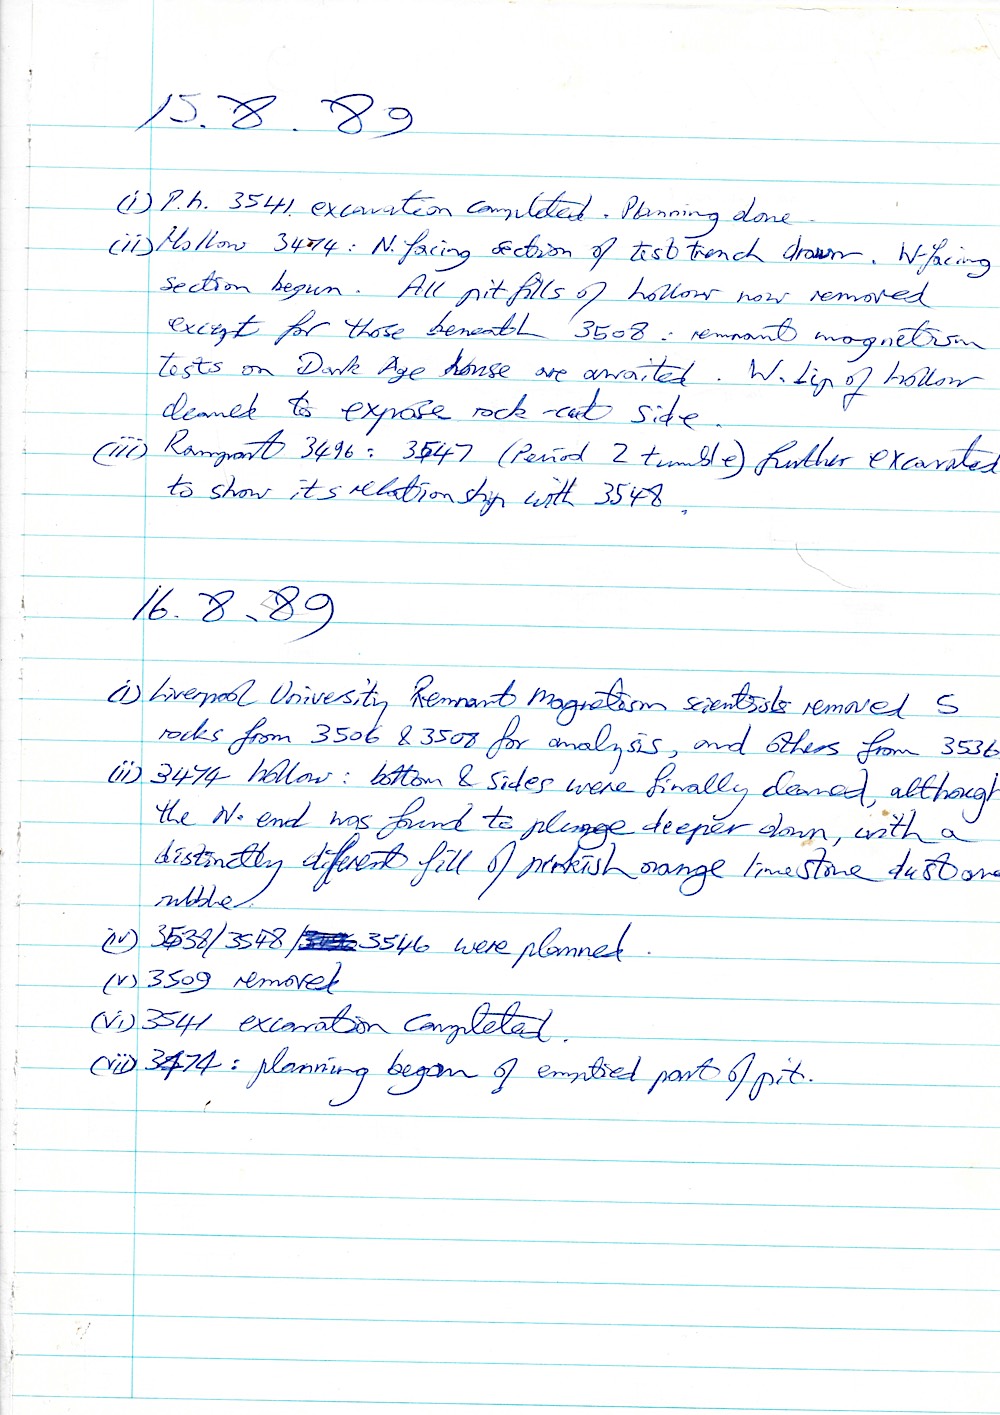 15.8.89
(i) P.h. 3541 excavation completed. Planning done.
(ii) Hollow 3474: N. facing section of test trench drawn. W-facing
section begun. All pit fills of hollow now removed
except for those beneath 3508: remnant magnetism
tests on Dark Age house are awaited. W. Lip of hollow
cleaned to expose rock-cut side.
(iii) Rampart 3496: 3547 (Period 2 tumble) further excavated
to show its relationship with 3548.
16.8.89
(i) Liverpool University Remnant Magnetism scientists removed 5
rocks from 3506 & 3508 for analysis, and others from 3536
(ii) 3474 hollow: bottom & sides were finally cleaned, although
the N. end was found to plunge deeper down, with a
distinctly different fill of pinkish orange limestone dust and
rubble.
(iv) 3538/3548/ 3546 were planned.
(v) 3509 removed
(vi) 3541 excavation completed.
(vii) 3474: planning began of emptied part of pit.